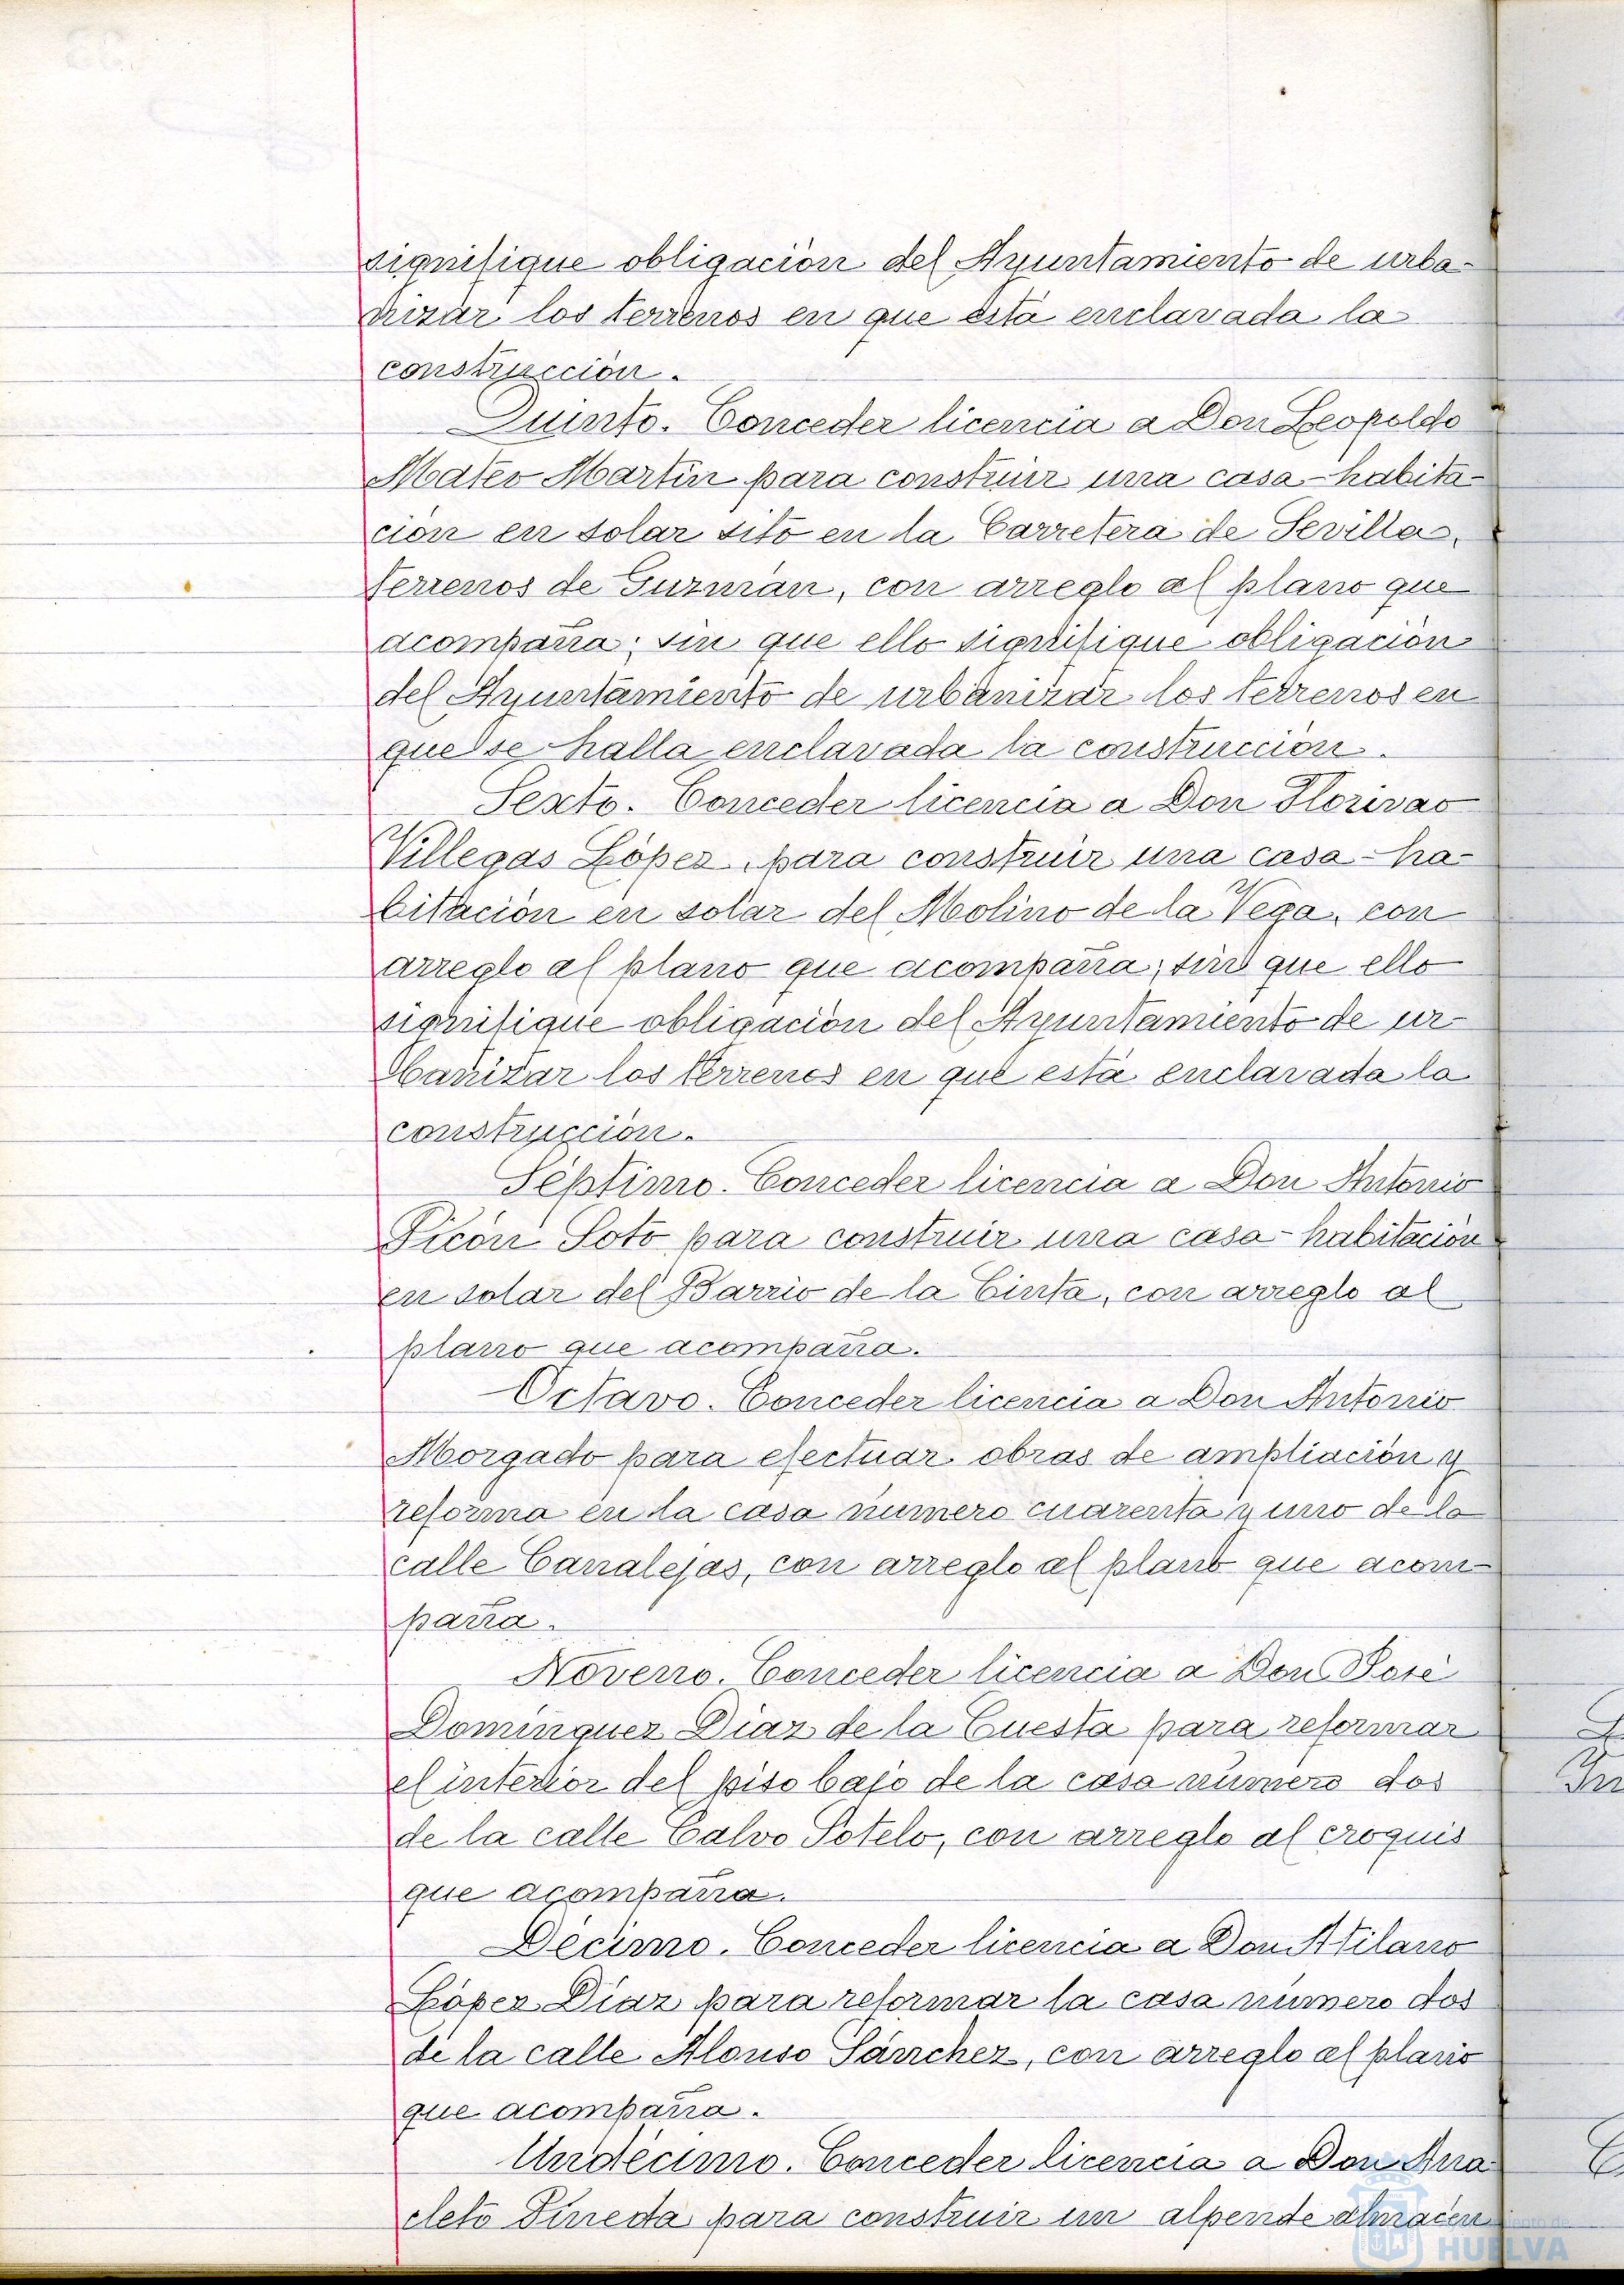 signifique obligación del Ayuntamiento de urba-
nizar los terrenos en que está enclavada la
construcción.
Quinto. Conceder licencia a Don Leopoldo
Mateo Martín para construir una casa-habita-
ción en solar sito en la Carretera de Sevilla,
terrenos de Guzmán, con arreglo al plano que
acompaña; sin que ello signifique obligación
del Ayuntamiento de urbanizar los terrenos en
que se halla enclavada la construcción.
Sexto. Conceder licencia a Don
Villegas López, para construir una casa-ha-
bitación en solar del Molino de la Vega, con
arreglo al plano que acompaña; sin que ello
signifique obligación del Ayuntamiento de ur-
banizar los terrenos en que está enclavada la
construcción.
Séptimo. Conceder licencia a Don Antonio
Picón Soto para construir una casa-habitación
en solar del Barrio de la Cinta, con arreglo al
plano que acompaña.
Octavo. Conceder licencia a Don Antonio
Morgado para efectuar obras de ampliación y
reforma en la casa número cuarenta y uno de la
calle Canalejas, con arreglo al plano que acom-
paña.
Noveno. Conceder licencia a Don José
Domínguez Díaz de la Cuesta para reformar
el interior del piso bajo de la casa número dos
de la calle Calvo Sotelo, con arreglo al croquis
que acompaña.
Décimo. Conceder licencia a Don Atilano
López Díaz para reformar la casa número dos
de la calle Alonso Sánchez, con arreglo al plano
que acompaña.
Undécimo. Conceder licencia a Don Ana
cleto Pineda para construir un alpende almacén
HUELVA